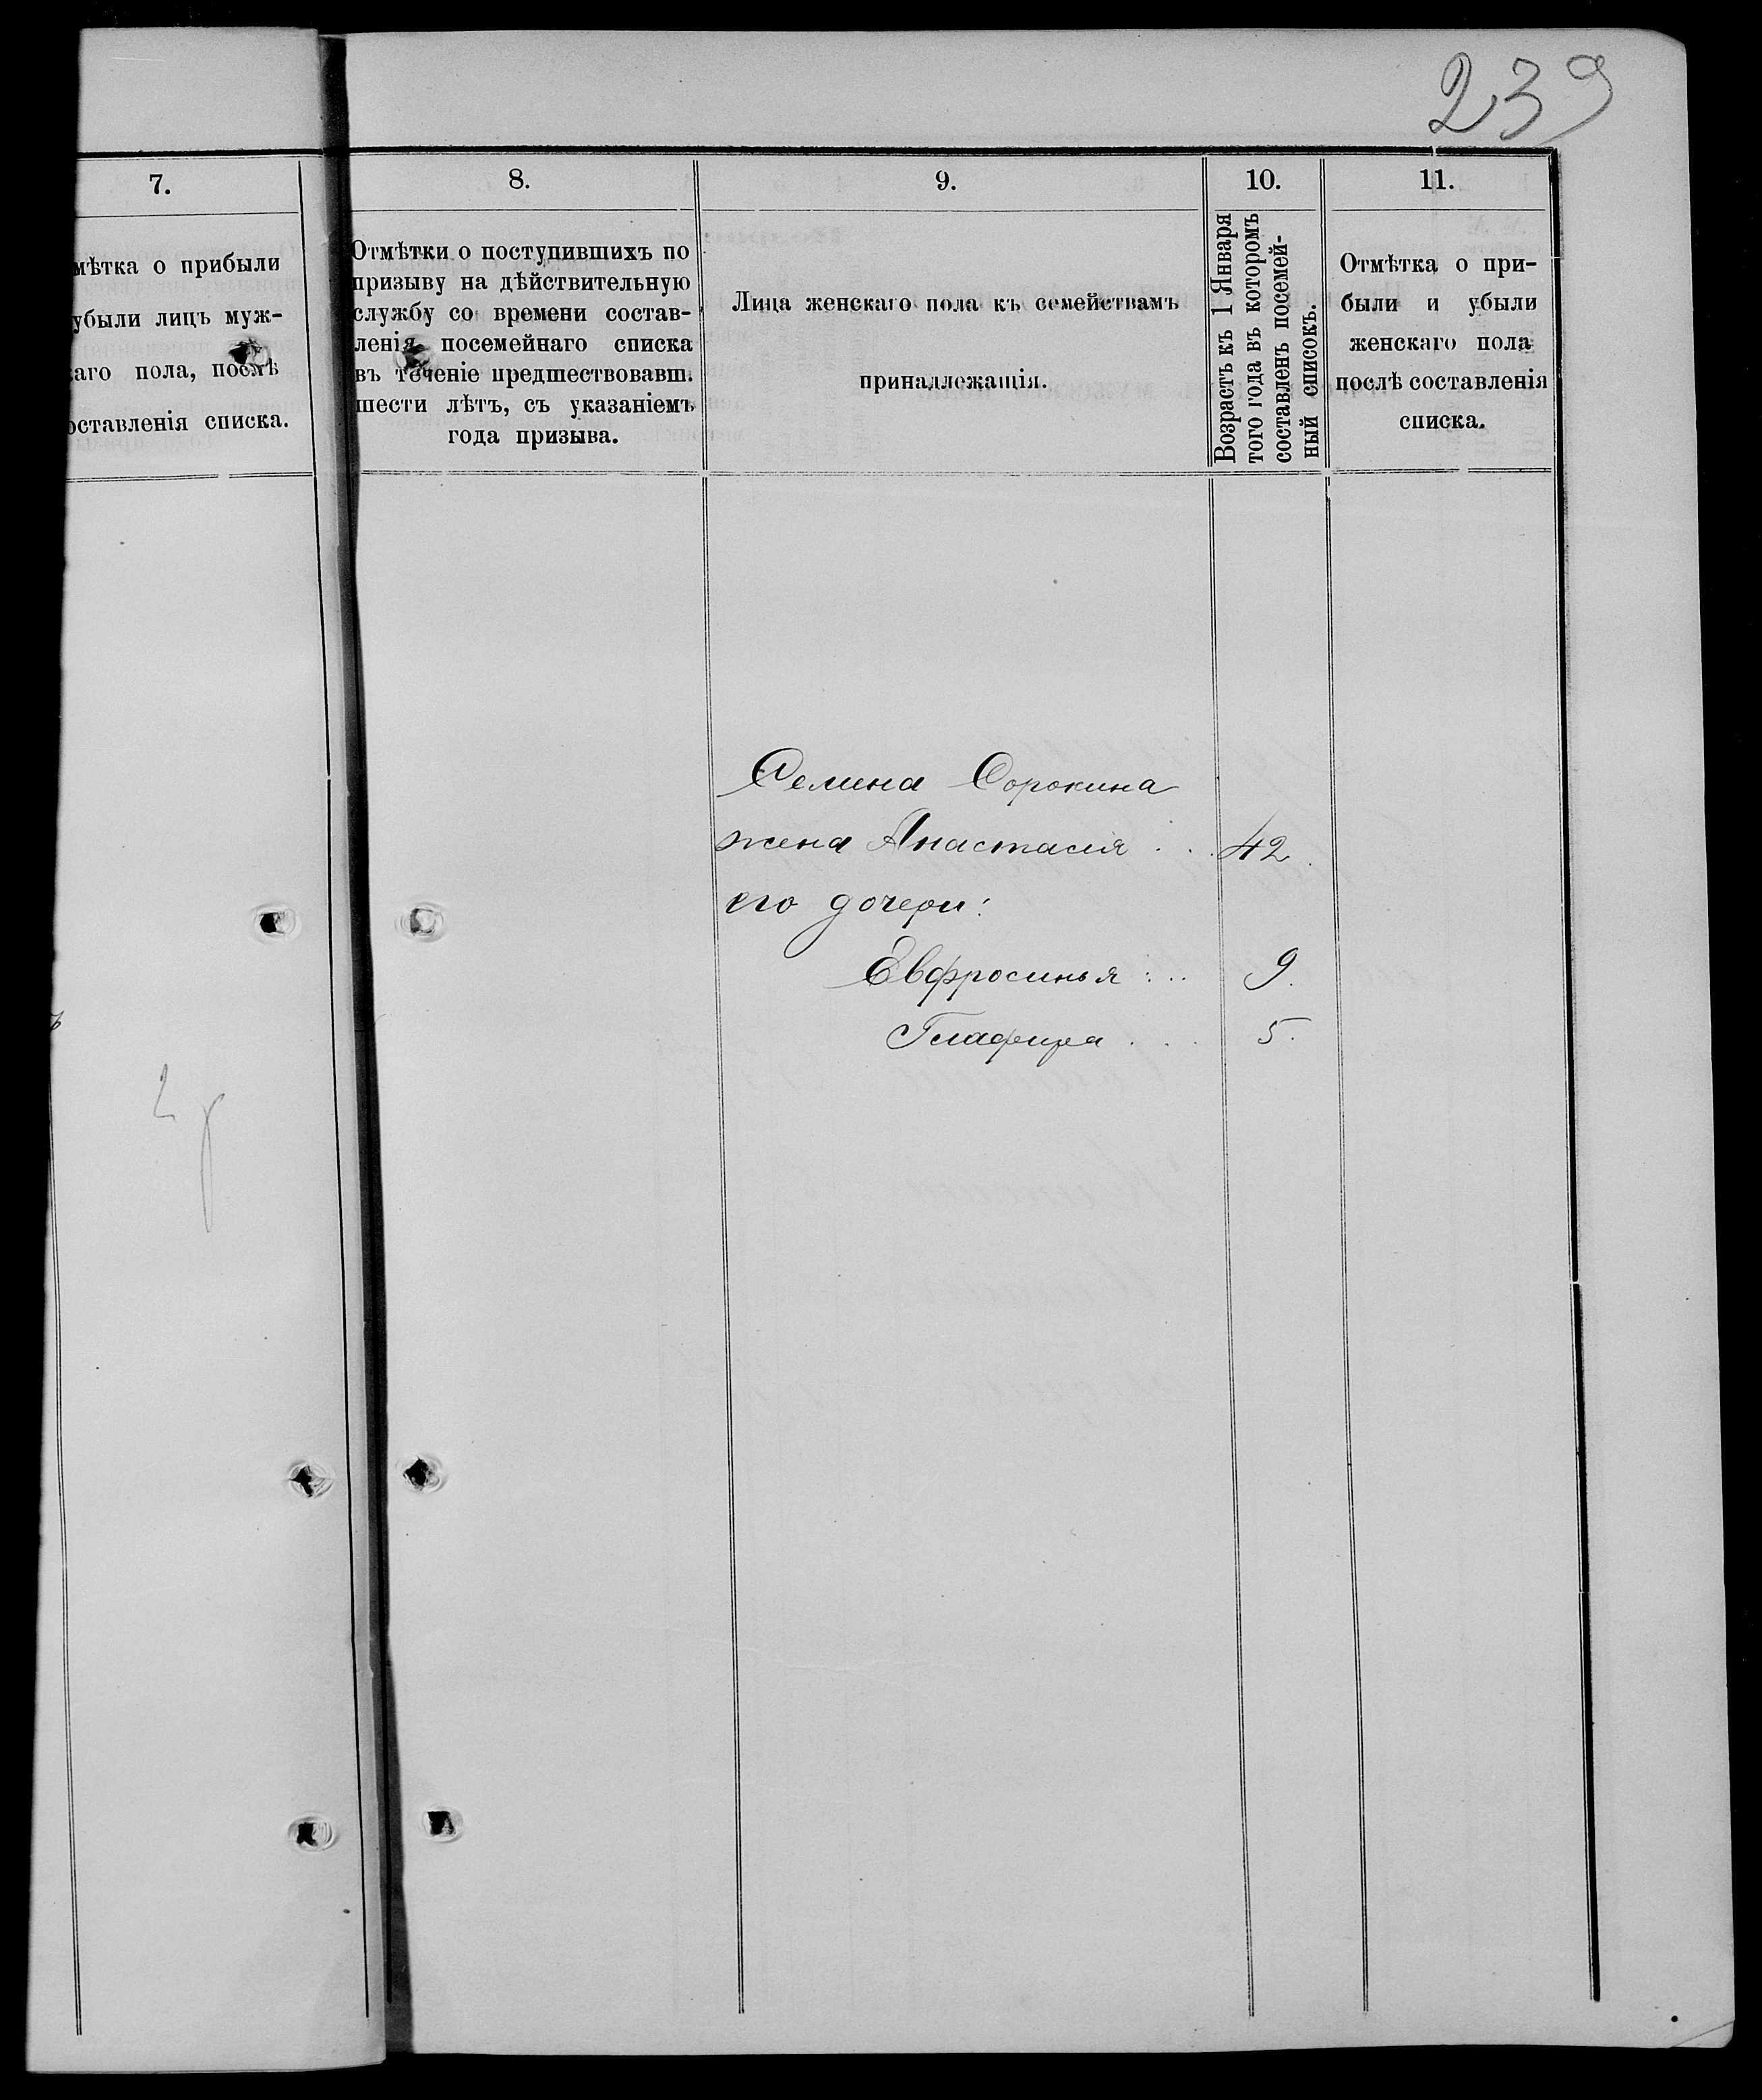 239
7.
мѣтка о прибыли
убыли лицъ муж-
каго пола, послѣ
оставленія списка.
8.
Отмѣтки о поступившихъ по
призыву на дѣйствительную
службу со времени состав-
ленія посемейнаго списка
въ теченіе предшествовавш.
шести лѣтъ, съ указаніемъ
года призыва.
9.
Лица женскаго пола къ семействамъ
принадлежащія.
10.
Возрастъ къ 1 Января
того года въ которомъ
составленъ посемей-
ный списокъ.
11.
Отмѣтка о при-
были и убыли
женскаго пола
послѣ составленія
списка.
Сорокина
жена Анастасія . . . 42.
его дочери:
Евфросинья . . . 9.
Глафира . . . 5.